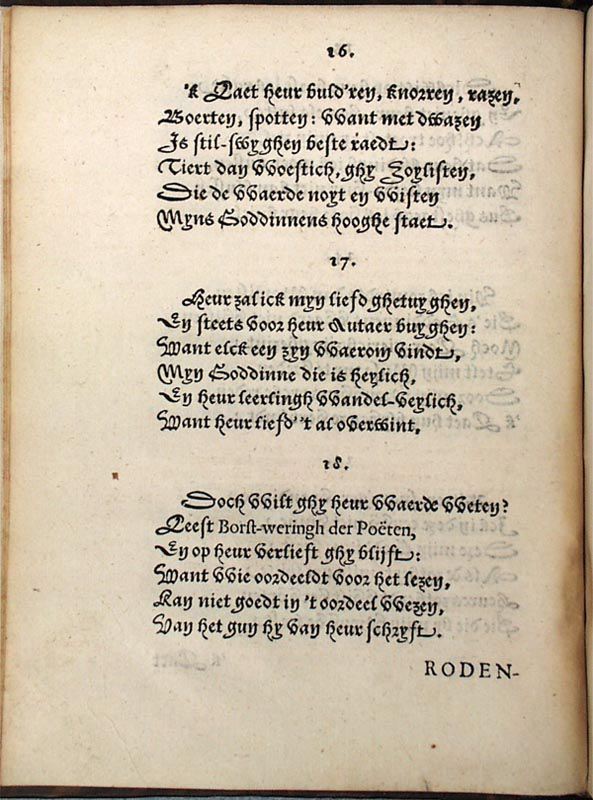 16.
'k Laet heur buld'ren, knorren, razen,
Boerten, spotten: VVant met dwazen
Is stil-swyghen beste raedt:
Tiert dan VVoestich, ghy Zoylisten,
Die de VVaerde noyt en VVisten
Myns Goddinnens hooghe staet.
17.
Heur zal ick myn liefd ghetuyghen,
En steets voor heur Autaer buyghen:
Want elck een zyn VVaerom vindt,
Myn Goddinne die is heylich,
En heur leerlingh VVandel-veylich,
Want heur liefd' 't al overwint.
18.
Doch VVilt ghy heur VVaerde VVeten?
Leest Borst-weringh der Poëten,
En op heur verlieft ghy blijft:
Want VVie oordeeldt voor het lezen,
Kan niet goedt in 't oordeel VVezen,
Van het gun hy van heur schryft.
RODEN-